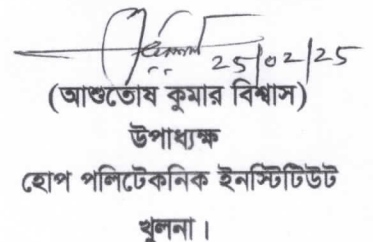 25/02/25
(আশুতোষ কুমার বিশ্বাস)
উপাধ্যক্ষ
হোপ পলিটেকনিক ইনস্টিটিউট
খুলনা।